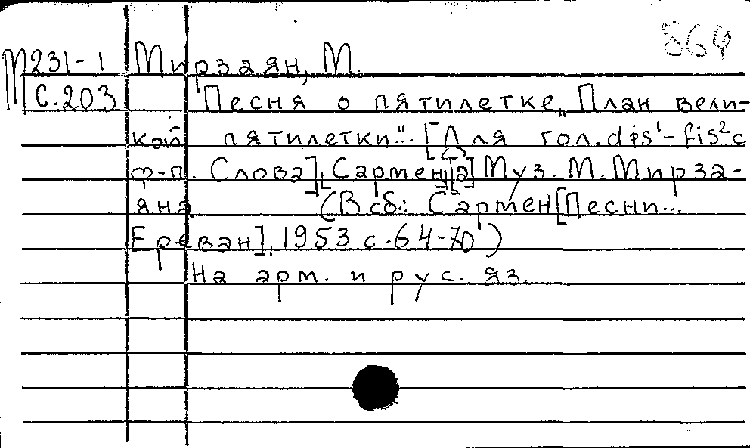 864
М231-1 Мирзаян, М.
С.203 Песня о пятилетке „План вели-
кой пятилетки". [Для гол. dis¹-fis² с
ф-п. Слова], Сармен[а] Муз. М. Мирза-
яна (В сб.: Сармен [Песни...
Ереван], 1953 с.64-70)
На арм. и рус. яз.